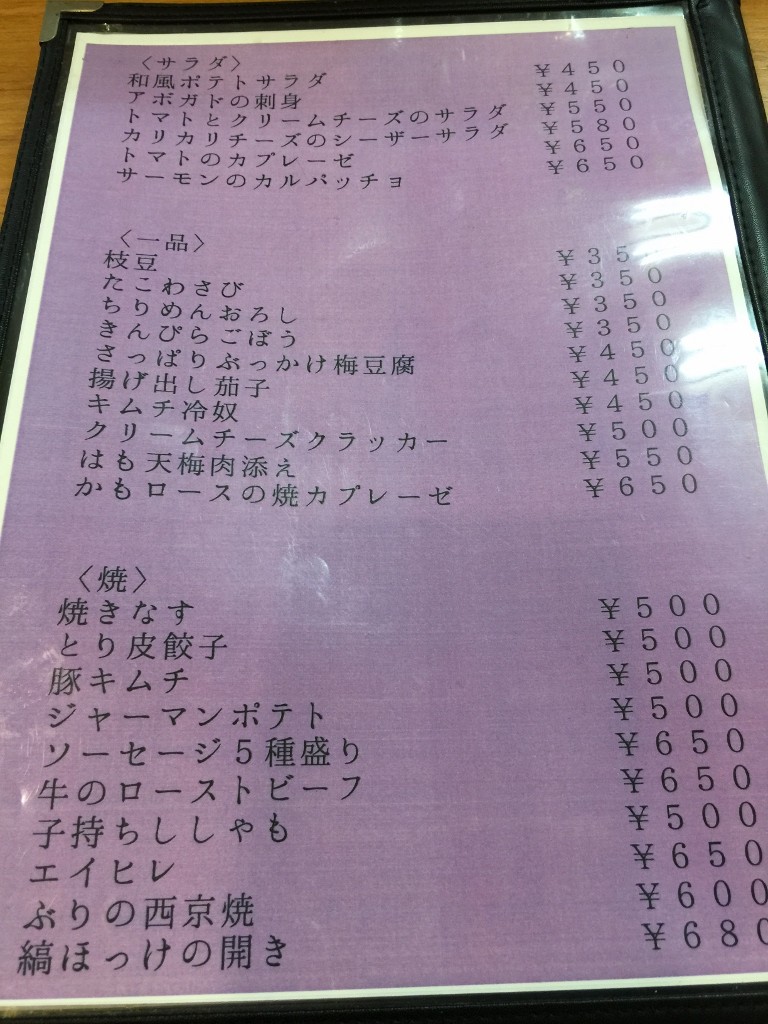 〈サラダ〉
和風ポテトサラダ ¥450
アボガドの刺身 ¥450
トマトとクリームチーズのサラダ ¥550
カリカリチーズのシーザーサラダ ¥580
トマトのカプレーゼ ¥650
サーモンのカルパッチョ ¥650
〈一品〉
枝豆 ¥35
たこわさび ¥350
ちりめんおろし ¥350
きんぴらごぼう ¥350
さっぱりぶっかけ梅豆腐 ¥450
揚げ出し茄子 ¥450
キムチ冷奴 ¥450
クリームチーズクラッカー ¥500
はも天梅肉添え ¥550
かもロースの焼カプレーゼ ¥650
〈焼〉
焼きなす ¥500
とり皮餃子 ¥500
豚キムチ ¥500
ジャーマンポテト ¥500
ソーセージ5種盛り ¥650
牛のローストビーフ ¥650
子持ちししゃも ¥500
エイヒレ ¥650
ぶりの西京焼 ¥600
縞ほっけの開き ¥680